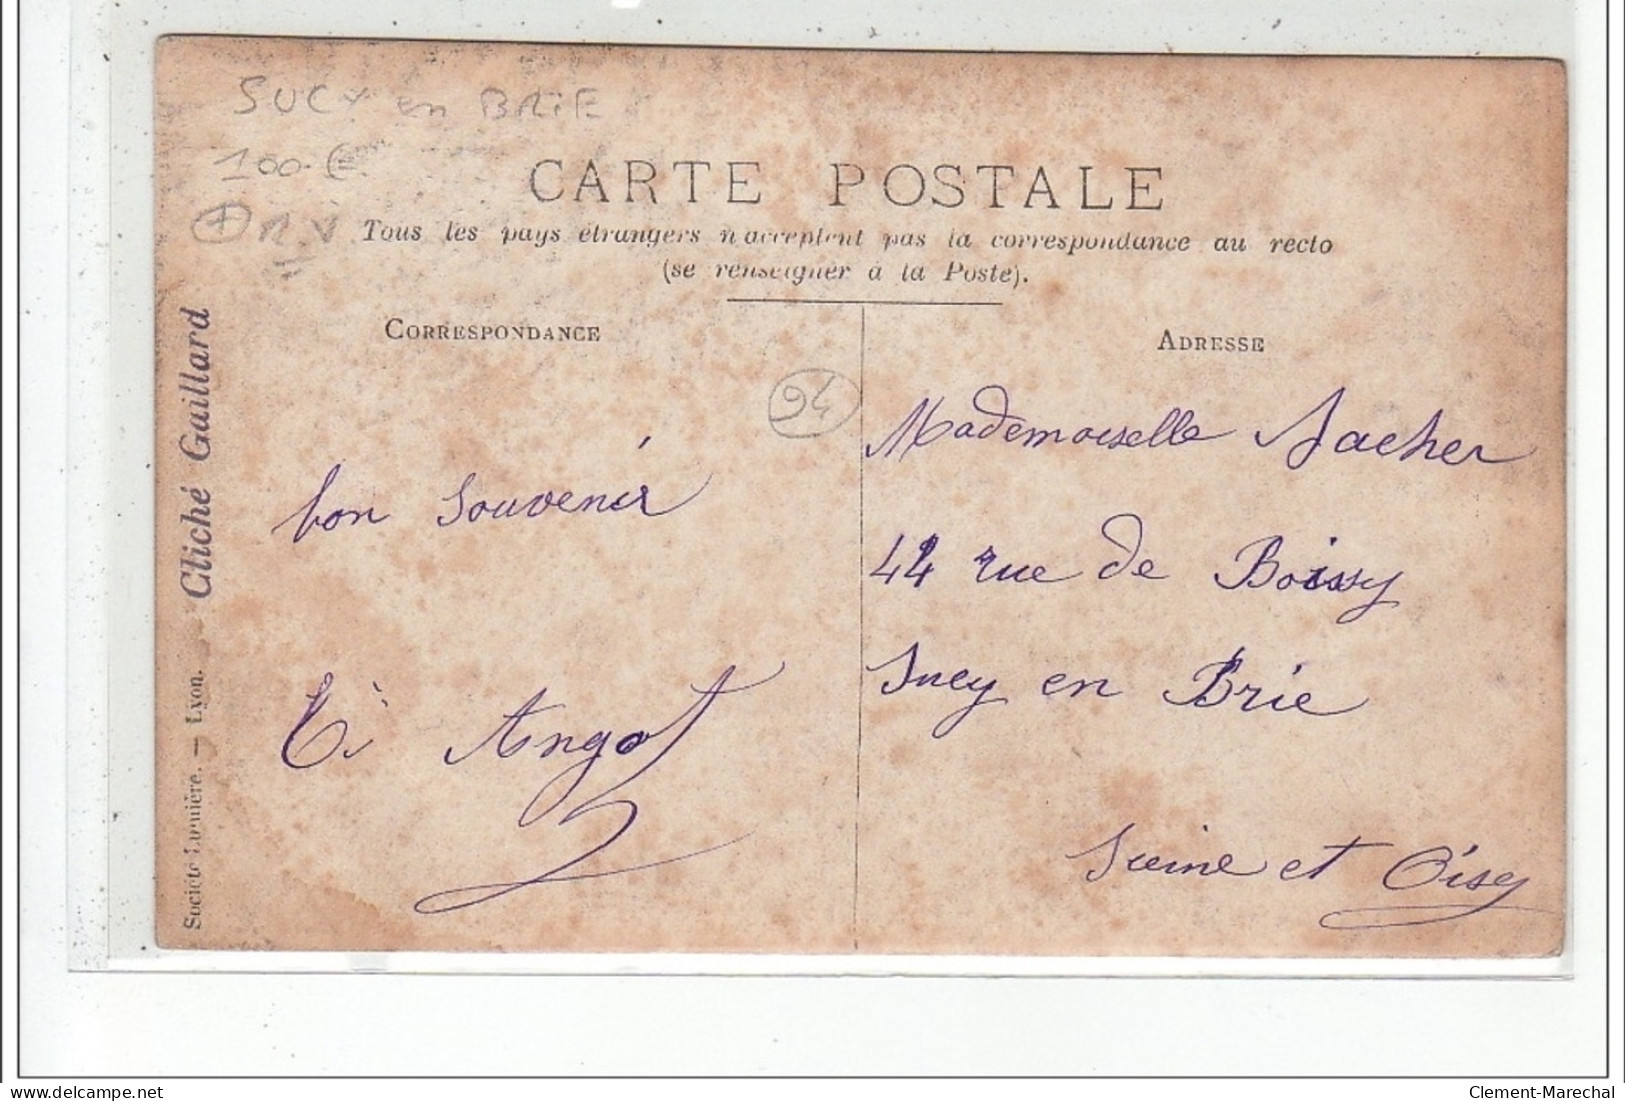 SUCY en BRIE
100 €
CARTE POSTALE
Tous les pays étrangers n'acceptent pas la correspondance au recto
(se renseigner à la Poste).
CORRESPONDANCE
ADRESSE
94
bon souvenir
Angot
Mademoiselle Sacher
44 rue de Boissy
Sucy en Brie
Seine et Oise
Société Lumière. — Lyon.
Cliché Gaillard
delcampe.net
Clement-Marechal